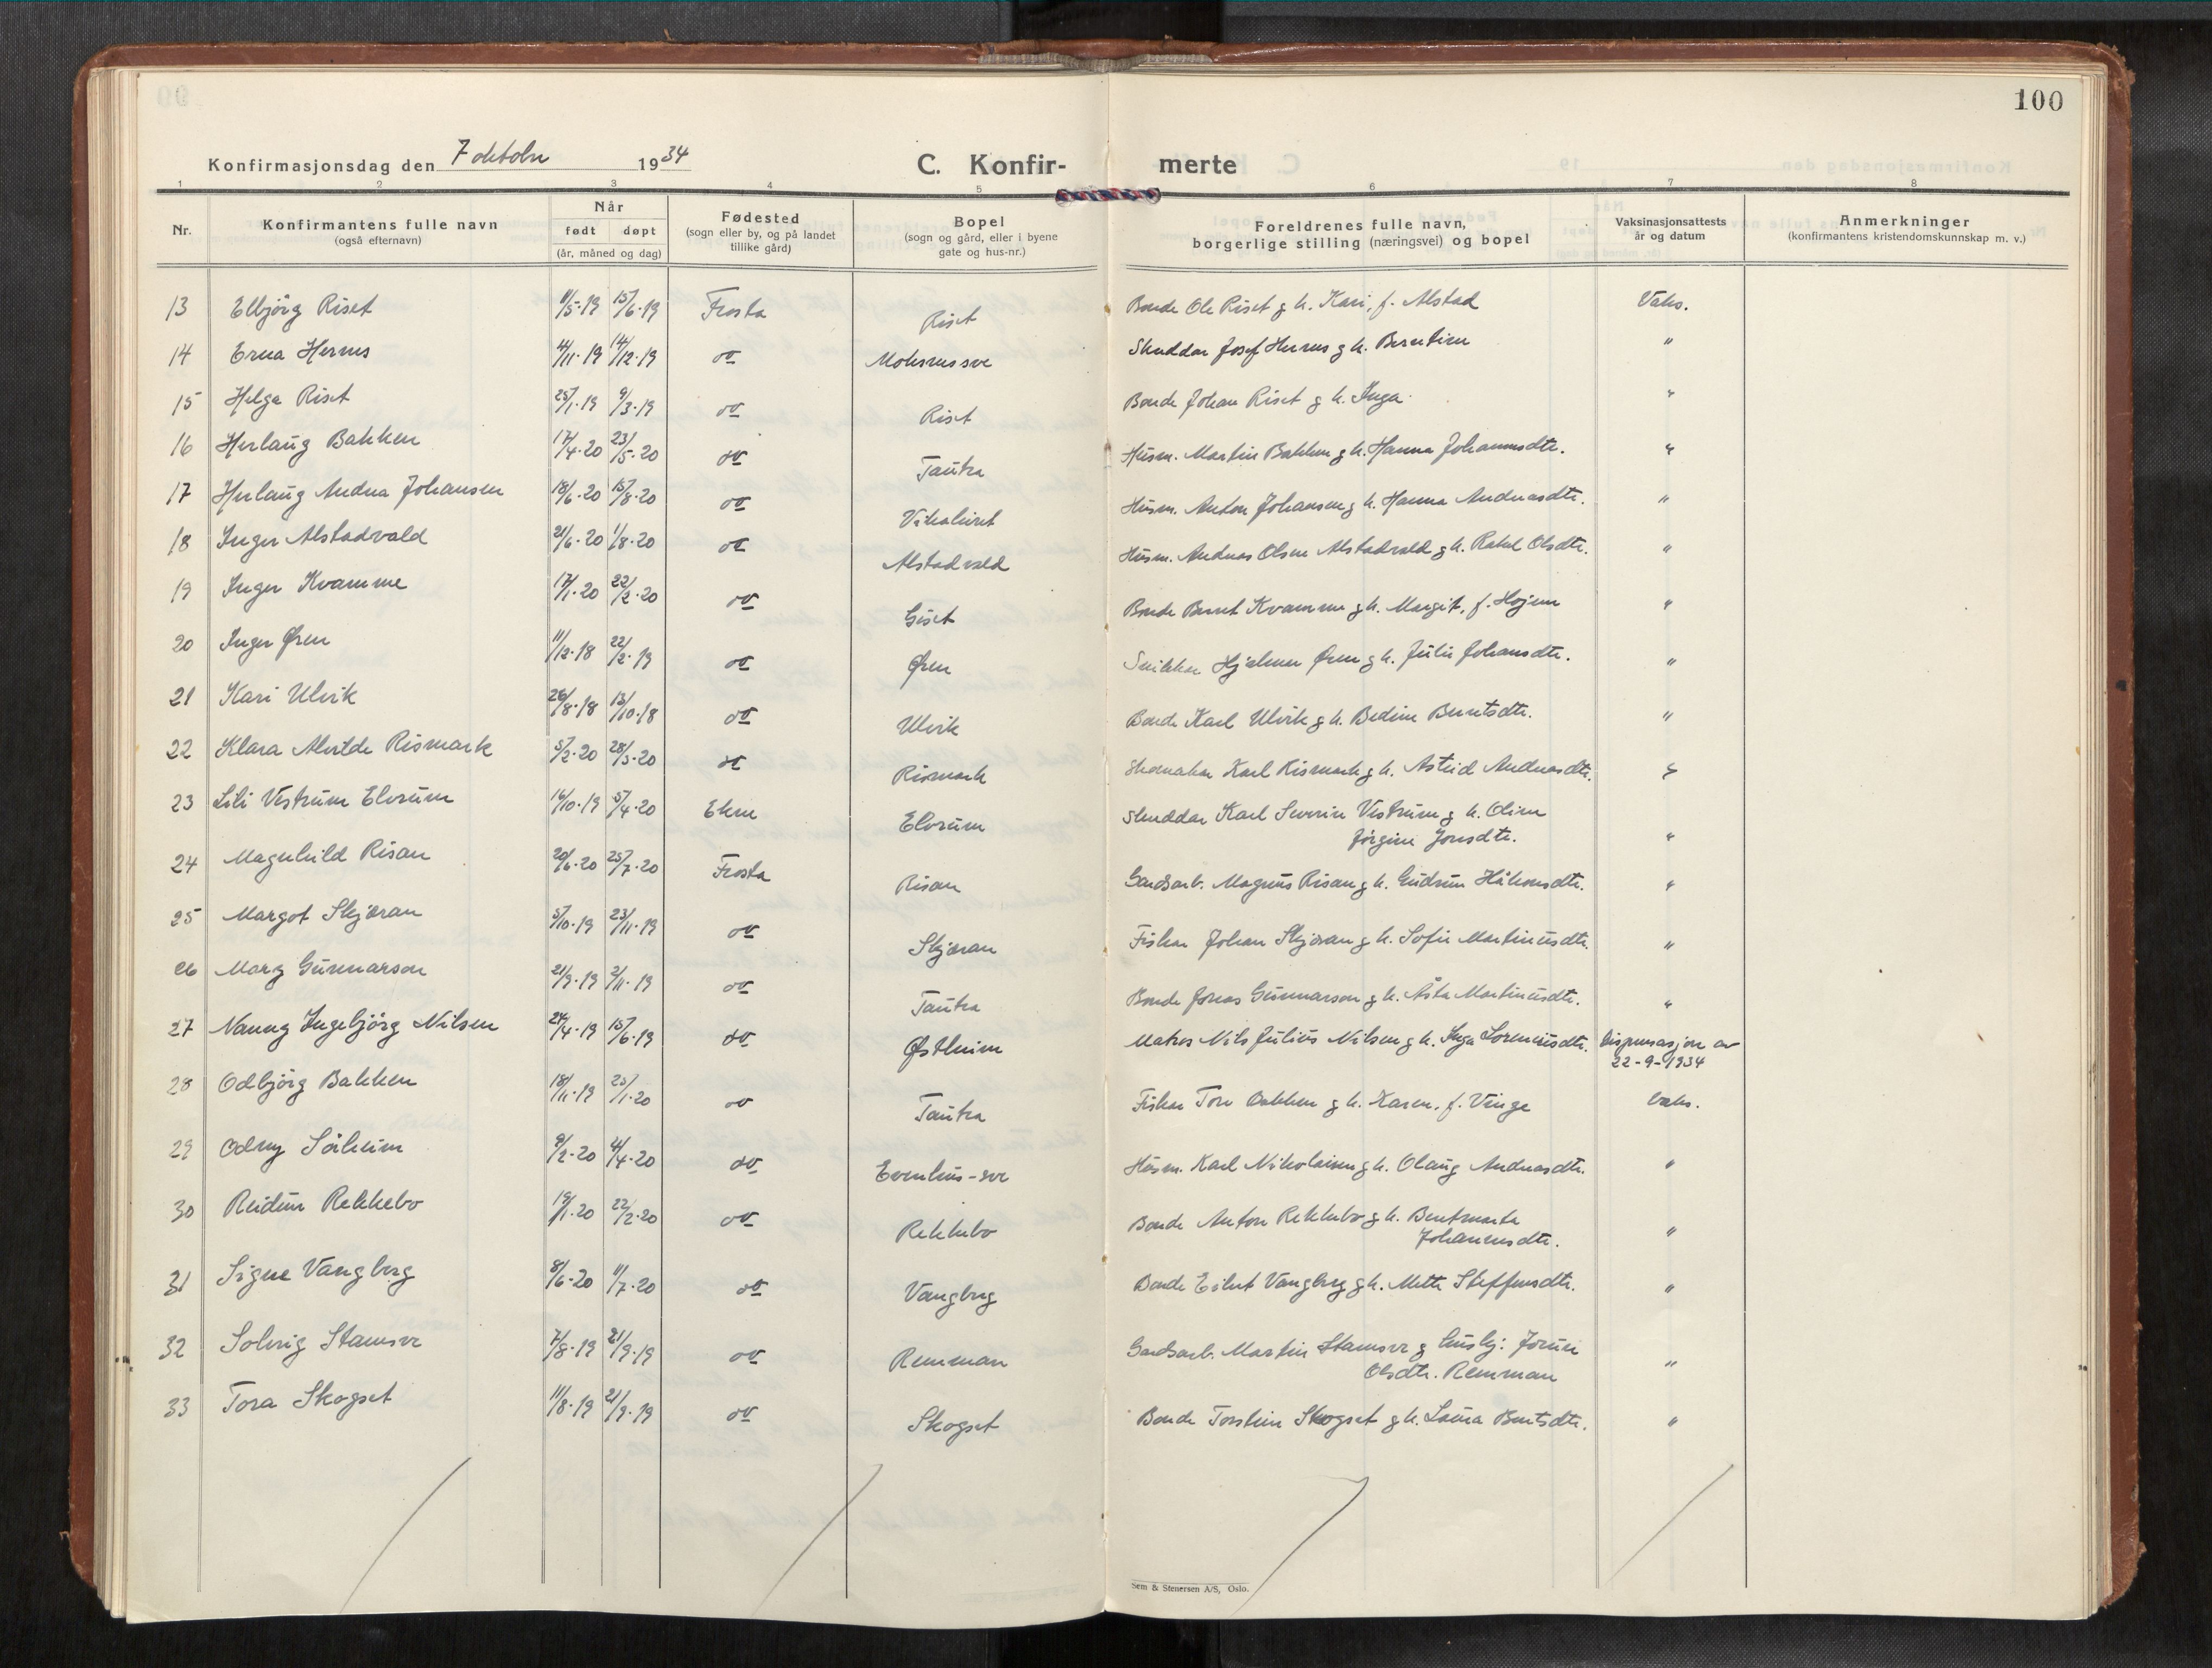 100
Konfirmasjonsdag den 7 oktober 1934
C. Konfir- merte
1 2 3 4 5 6 7 8
Nr. Konfirmantens fulle navn (også efternavn) Når født døpt (år, måned og dag) Fødested (sogn eller by, og på landet tillike gård) Bopel (sogn og gård, eller i byene gate og hus-nr.) Foreldrenes fulle navn, borgerlige stilling (næringsvei) og bopel Vaksinasjonsattests år og datum Anmerkninger (konfirmantens kristendomskunnskap m. v.)
13 Elbjörg Riset 11/5-19 15/6-19 Frosta Riset Bonde Ole Riset g h. Kari, f. Alstad Vaks.
14 Erna Hernes 4/11-19 14/12-19 do Skreddar Josef Hernes g h. Berntine "
15 Helga Riset 25/1-19 9/3-19 do Riset Bonde Johan Riset g h. Inga "
16 Herlaug Bakken 17/4-20 23/5-20 do Tautra Husm. Martin Bakken g h. Hanna Johannesdtr. "
17 Herlaug Andrea Johansen 18/6-20 15/8-20 do Husm. Anton Johansen g h. Hanna Andreasdtr. "
18 Inger Alstadvald 21/6-20 1/8-20 do Alstadvald Husm. Andreas Olsen Alstadvald g h. Rakel Olsdtr. "
19 Inger Kvamme 17/1-20 22/2-20 do Giset Bonde Bernt Kvamme g h. Margit, f. Hojem "
20 Inger Øren 11/12-18 22/2-19 do Øren Snikkar Hjalmar Øren g h. Julie Johansdtr. "
21 Kari Ulvik 26/8-18 13/10-18 do Ulvik Bonde Karl Ulvik g h. Bedine Berntsdtr. "
22 Klara Alvilde Rismark 5/2-20 28/3-20 do Rismark Skomakar Karl Rismark g h. Astrid Andreasdtr. "
23 Lili Vestrum Elvrum 16/10-19 5/4-20 Ekne Elvrum Skreddar Karl Severin Vestrum g h. Oline
Jørgine Jonsdtr. "
24 Magnhild Risan 20/6-20 25/7-20 Frosta Risan Gardsarb. Magnus Risan g h. Gudrun Håkonsdtr. "
25 Margot Skjæran 5/10-19 23/11-19 do Skjæran Fiskar Johan Skjæran g h. Sofie Martinusdtr. "
26 Mary Gunnarson 21/9-19 2/11-19 do Tautra Bonde Jonas Gunnarson g h. Åsta Martinusdtr. "
27 Nanny Ingebjörg Nilsen 24/4-19 15/6-19 do Østheim Matros Nils Julius Nilsen g h. Inga Lorentsdtr. Dispensasjon av
22-9-1934
28 Odbjörg Bakken 18/11-19 25/1-20 do Tautra Fiskar Tore Bakken g h. Karen, f. Vinge Vaks.
29 Odny Solheim 9/2-20 4/4-20 do Evenhus-sve Husm. Karl Nikolaisen g h. Olaug Andreasdtr. "
30 Reidun Rekkebo 19/1-20 22/2-20 do Rekkebo Bonde Anton Rekkebo g h. Berntmarta
Johannesdtr. "
31 Signe Vangberg 8/6-20 11/7-20 do Vangberg Bonde Eilert Vangberg g h. Mette Steffensdtr. "
32 Solveig Stamsve 7/8-19 21/9-19 do Remman Gardsarb. Martin Stamsve g husbj: Jorun
Olsdtr. Remman "
33 Tora Skogset 11/8-19 21/9-19 do Skogset Bonde Torstein Skogset g h. Laura Berntsdtr. "
Sem & Stenersen A/S, Oslo.